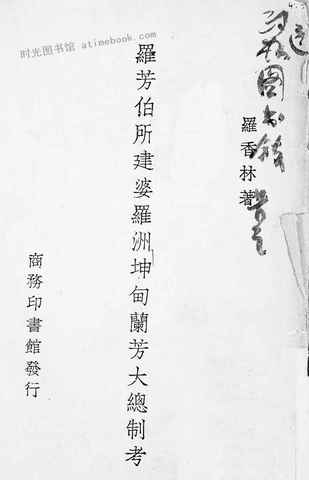 时光图书馆 atimebook.com
羅香林著
羅芳伯所建婆羅洲坤甸蘭芳大總制考
商務印書館發行